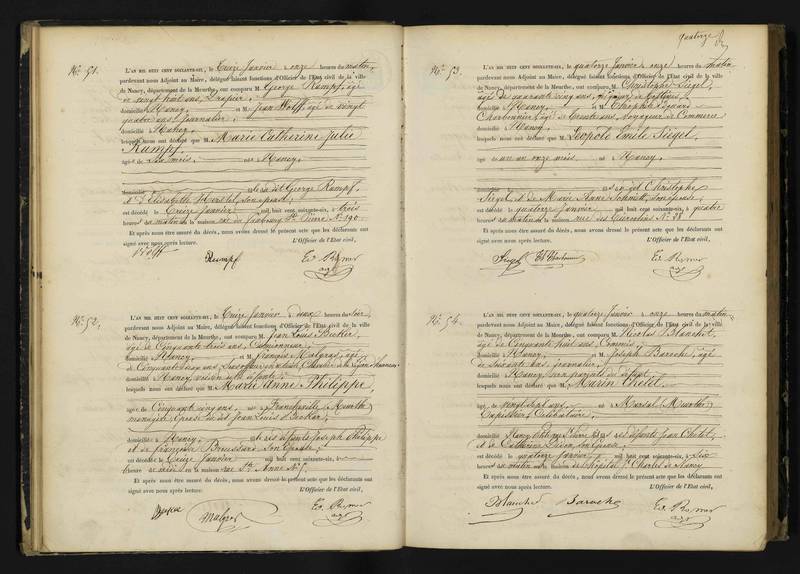 No. 51.
L'AN MIL HUIT CENT SOIXANTE-SIX, le Treize Janvier à onze heures du matin,
pardevant nous Adjoint au Maire, délégué faisant fonctions d'Officier de l'Etat civil de la ville
de Nancy, département de la Meurthe, ont comparu M. George Rumpf, âgé
de vingt huit ans, Drapier,
domicilié à Nancy, et M. Jean Wolff âgé de vingt
quatre ans, journalier,
domicilié à Nancy,
lesquels nous ont déclaré que M. Marie Catherine Julie
Rumpf,
âgé de six mois, né à Nancy,
domicilié George Rumpf,
et d'Elisabeth son épouse,
est décédé le Treize Janvier mil huit cent soixante-six, à trois
heures du matin en la maison rue du faubourg St. Pierre No. 190
Et après nous être assuré du décès, nous avons dressé le présent acte que les déclarants ont
signé avec nous après lecture. L'Officier de l'Etat civil,
Wolff Rumpf
No. 52.
L'AN MIL HUIT CENT SOIXANTE-SIX, le Treize Janvier à deux heures du soir,
pardevant nous Adjoint au Maire, délégué faisant fonctions d'Officier de l'Etat civil de la ville
de Nancy, département de la Meurthe, ont comparu M. Jean Louis Becker,
âgé de Cinquante trois ans,
domicilié à Nancy, et M. françois Malgras, âgé
de Cinquante cinq ans,
domicilié à Nancy,
lesquels nous ont déclaré que M. Marie Anne Philippe,
âgée de Cinquante cinq ans, née à (Meurthe)
ménagère, Epouse de Jean Louis Becker,
domiciliée à Nancy, Joseph Philippe
et de françoise son Epouse,
est décédée le Treize Janvier mil huit cent soixante-six, à
heure en la maison rue Ste. Anne No. 5.
Et après nous être assuré du décès, nous avons dressé le présent acte que les déclarants ont
signé avec nous après lecture. L'Officier de l'Etat civil,
Malgras
quatorze
No. 53.
L'AN MIL HUIT CENT SOIXANTE-SIX, le quatorze Janvier à onze heures du matin,
pardevant nous Adjoint au Maire, délégué faisant fonctions d'Officier de l'Etat civil de la ville
de Nancy, département de la Meurthe, ont comparu M. Christophe Siegel,
âgé de quarante cinq ans,
domicilié à Nancy, et M. Edouard
Charbonnier, âgé de trente ans, Voyageur de Commerce
domicilié à Nancy,
lesquels nous ont déclaré que M. Léopold Emile Siegel,
âgé de un an onze mois, né à Nancy,
domicilié Christophe
Siegel, et de Marie Anne Schmitt, son épouse,
est décédé le quatorze Janvier mil huit cent soixante-six, à quatre
heures du matin en la maison rue des No. 28
Et après nous être assuré du décès, nous avons dressé le présent acte que les déclarants ont
signé avec nous après lecture. L'Officier de l'Etat civil,
No. 54.
L'AN MIL HUIT CENT SOIXANTE-SIX, le quatorze Janvier à onze heures du matin,
pardevant nous Adjoint au Maire, délégué faisant fonctions d'Officier de l'Etat civil de la ville
de Nancy, département de la Meurthe, ont comparu M. Nicolas Blanchet,
âgé de Cinquante huit ans, Commis,
domicilié à Nancy, et M. Joseph Baroche, âgé
de Soixante ans, journalier,
domicilié à Nancy,
lesquels nous ont déclaré que M. Marin Chetel,
âgé de vingt sept ans, né à Marsal (Meurthe)
Tapissier, Célibataire,
domicilié à Nancy, Jean Chetel,
et de Catherine son Epouse,
est décédé le quatorze Janvier mil huit cent soixante-six, à Six
heures du matin en la maison de l'hôpital St. Charles de Nancy
Et après nous être assuré du décès, nous avons dressé le présent acte que les déclarants ont
signé avec nous après lecture. L'Officier de l'Etat civil,
Blanchet Baroche